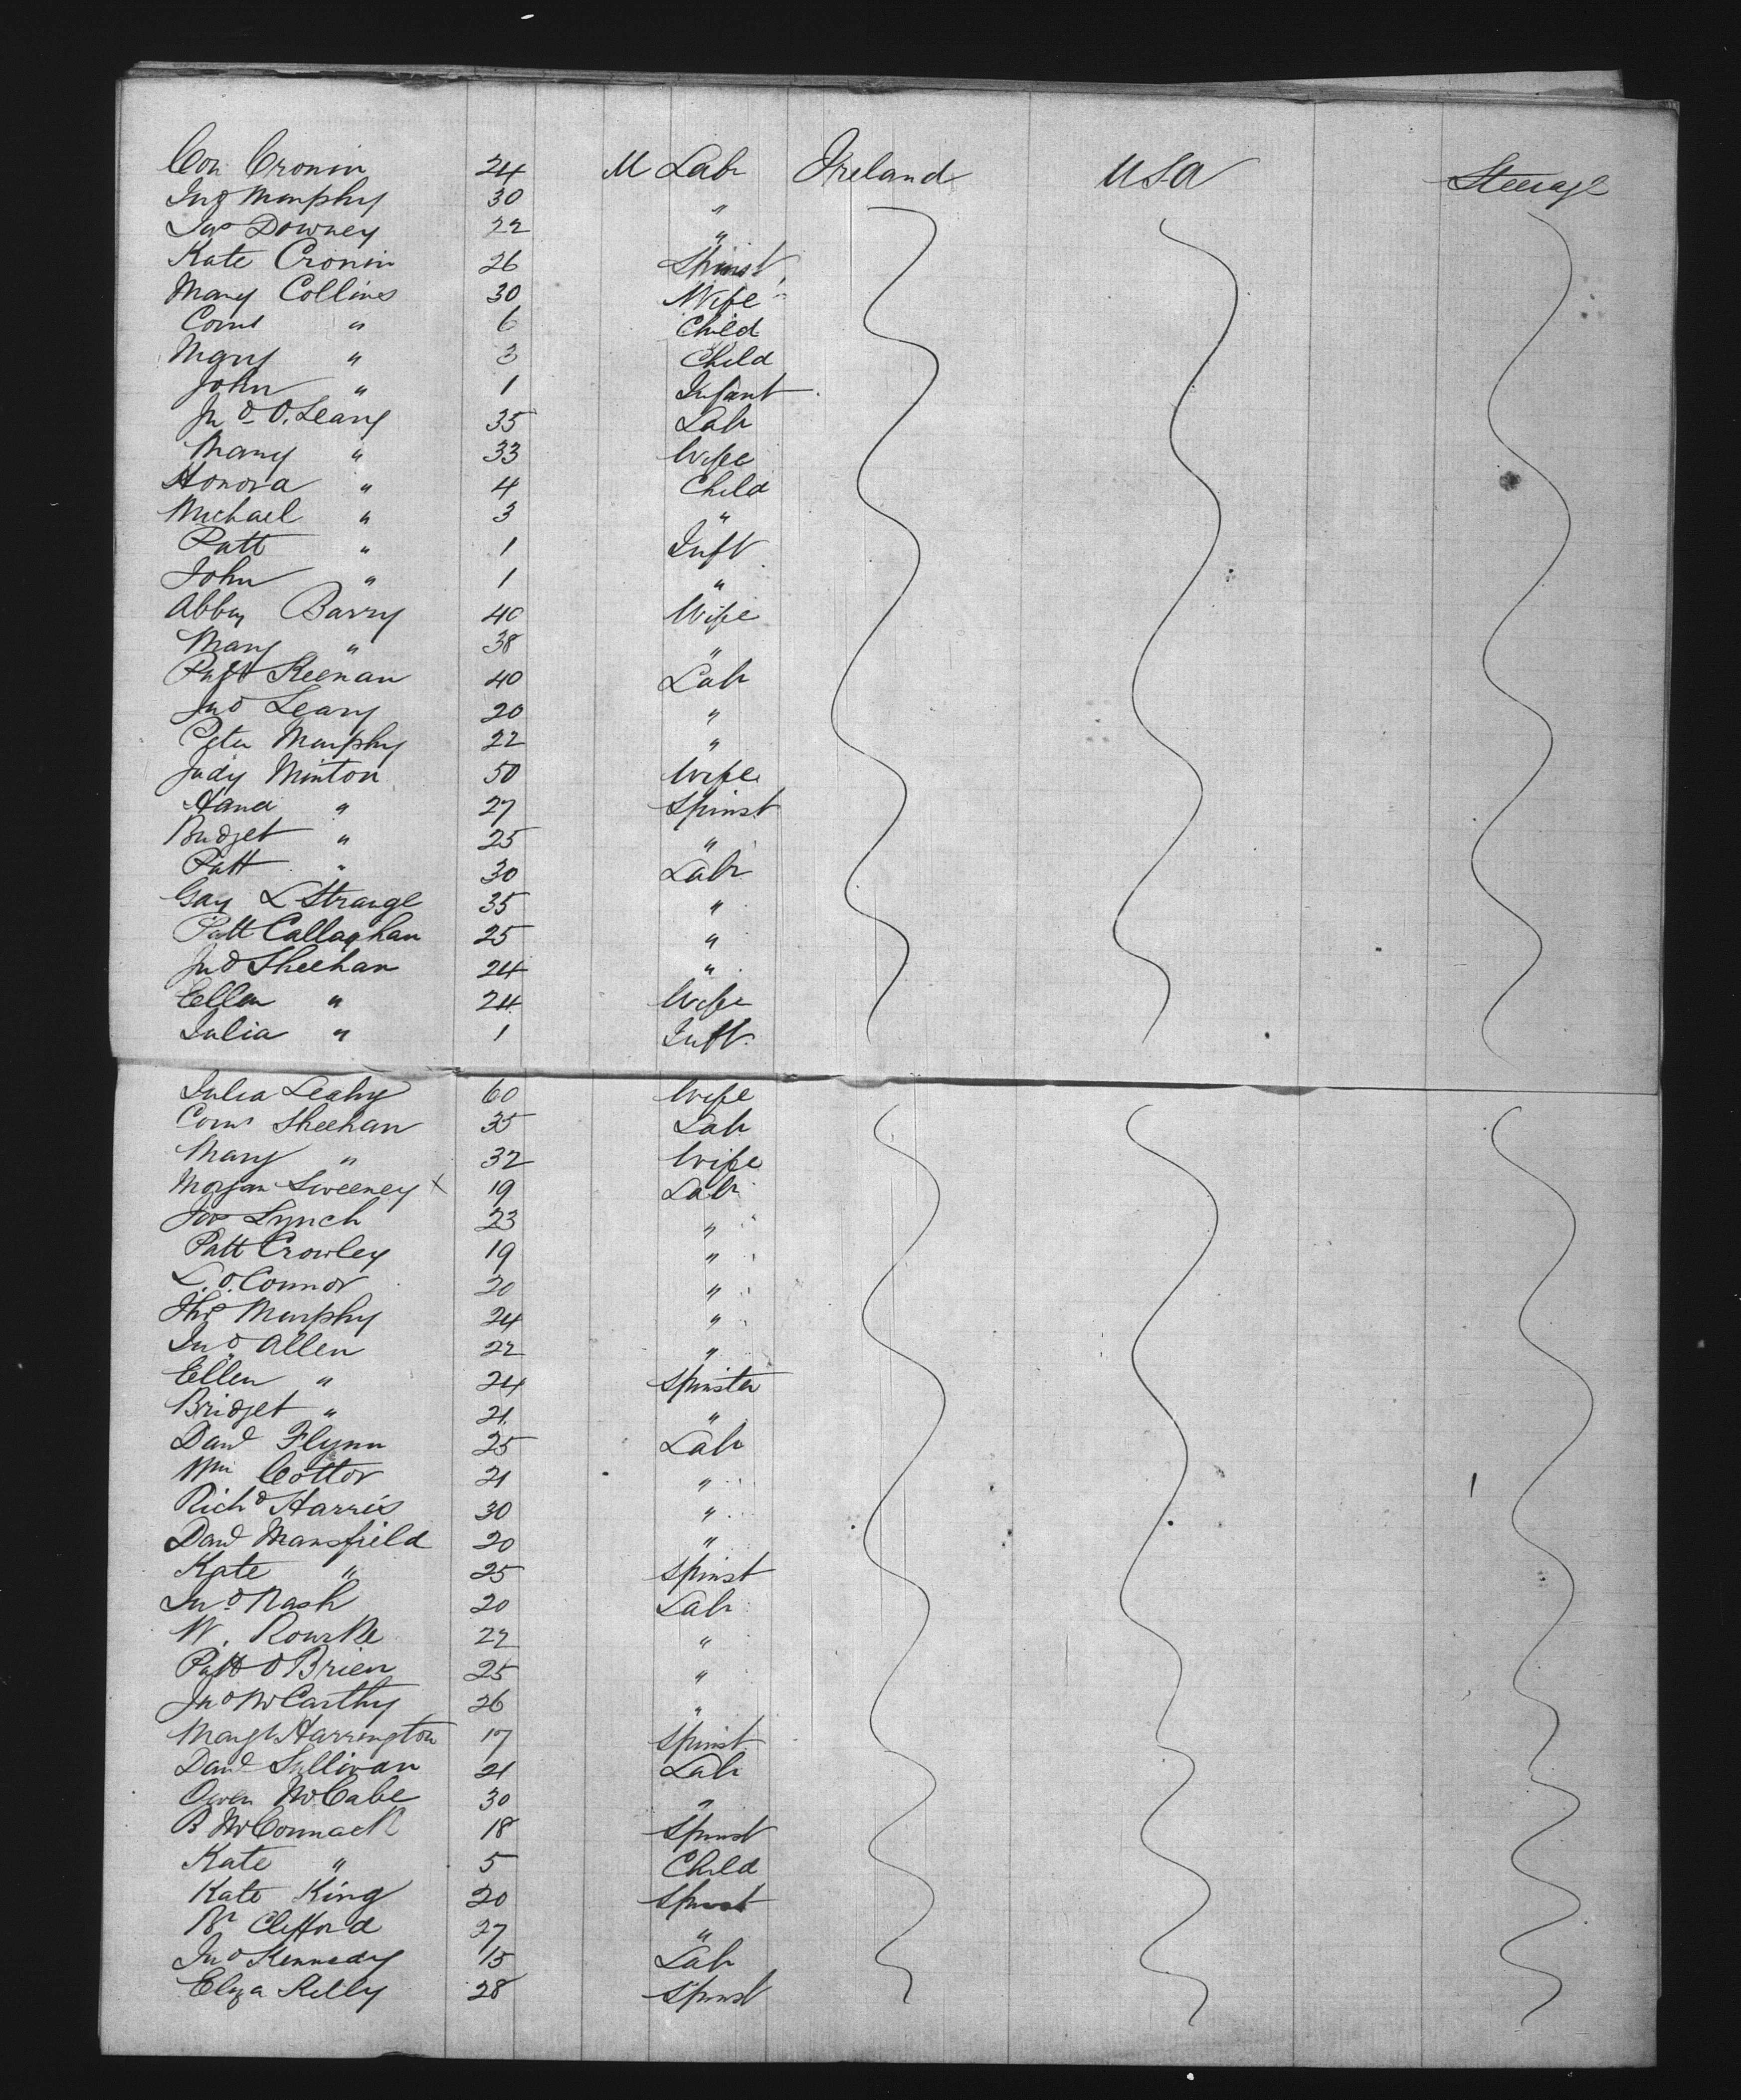 Con Cronin 24 M Lab Ireland USA Steerage
Jno Murphy 30 "
Jas Downey 22 "
Kate Cronin 26 Spinst
Mary Collins 30 Wife
Corns " 6 Child
Mary " 3 Child
John " 1 Infant
Jno O.Leary 35 Lab
Mary " 33 Wife
Honora " 4 Child
Michael " 3 "
Patt " 1 Inft
John " 1 "
Abby Barry 40 Wife
Mary " 38 "
Patt Keenan 40 Lab
Jno Leary 20 "
Peter Murphy 22 "
Judy Minton 50 Wife
Hana " 27 Spinst
Bridget " 25 "
Patt " 30 Labr
L Strange 35 "
Patt Callaghan 25 "
Jno Sheehan 24 "
Ellen " 24 Wife
Julia " 1 Inft
Julia Leahy 60 Wife
Corns Sheehan 35 Lab
Mary " 32 Wife
Morgan Sweeney x 19 Labr
Jas Lynch 23 "
Patt Crowley 19 "
L. O.Connor 20 "
Thos Murphy 24 "
Jno Allen 22 "
Ellen " 24 Spinster
Bridget " 21 "
Davd Flynn 25 Lab
Wm Cottor 21 "
Richd Harris 30 "
Davd Mansfield 20 "
Kate " 25 Spinst
Jno Nash 20 Lab
W. Rourke 22 "
Patt O Brien 25 "
Jno McCarthy 26 "
Margt Harrington 17 Spinst
Davd Sullivan 21 Lab
Owen McCabe 30 "
B McConnack 18 Spinst
Kate " 5 Child
Kate King 20 Spinst
Clifford 27 "
Jno Kennedy 15 Lab
Eliza Kelly 28 Spinst